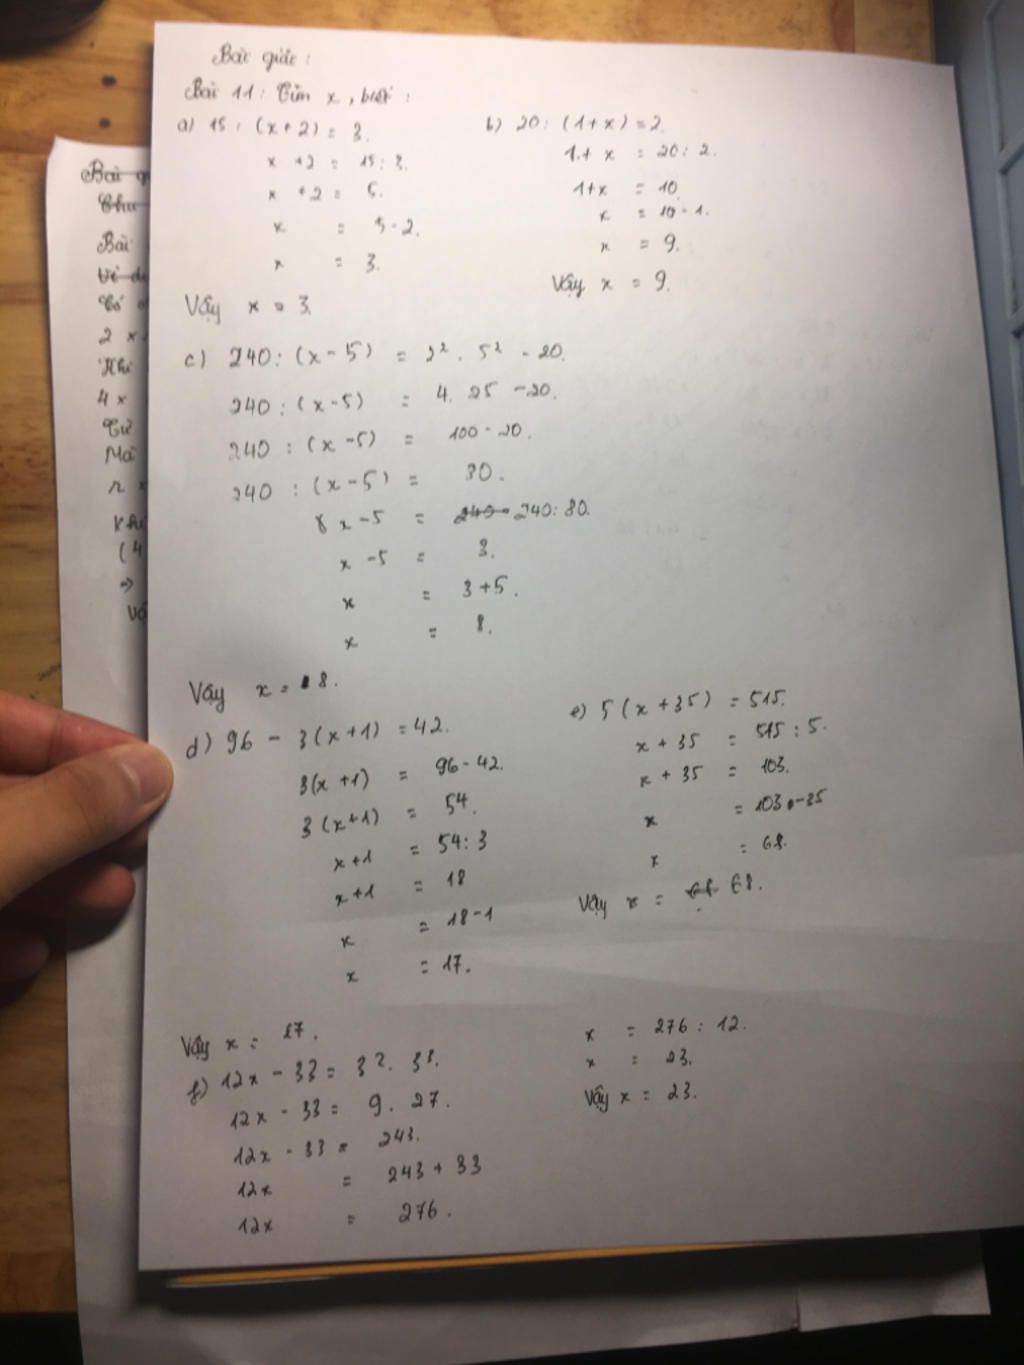 Bài giải :
Bài 11 : Tìm x , biết :
a) 15 : (x + 2) = 3.
x + 2 = 15 : 3.
x + 2 = 5.
x = 5 - 2.
x = 3.
Vậy x = 3.
b) 20 : (1 + x) = 2.
1 + x = 20 : 2.
1 + x = 10.
x = 10 - 1.
x = 9.
Vậy x = 9.
c) 240 : (x - 5) = 2² . 5² - 20.
240 : (x - 5) = 4 . 25 - 20.
240 : (x - 5) = 100 - 20.
240 : (x - 5) = 80.
x - 5 = 240 : 80.
x - 5 = 3.
x = 3 + 5.
x = 8.
Vậy x = 8.
d) 96 - 3(x + 1) = 42.
3(x + 1) = 96 - 42.
3(x + 1) = 54.
x + 1 = 54 : 3
x + 1 = 18
x = 18 - 1
x = 17.
Vậy x = 17.
e) 5(x + 35) = 515.
x + 35 = 515 : 5.
x + 35 = 103.
x = 103 - 35
x = 68.
Vậy x = 68.
f) 12x - 33 = 3² . 3³.
12x - 33 = 9 . 27.
12x - 33 = 243.
12x = 243 + 33
12x = 276.
x = 276 : 12.
x = 23.
Vậy x = 23.
Bài
Có
2 x
Khi
4 x
Từ
Mà
Khi
(4
=>